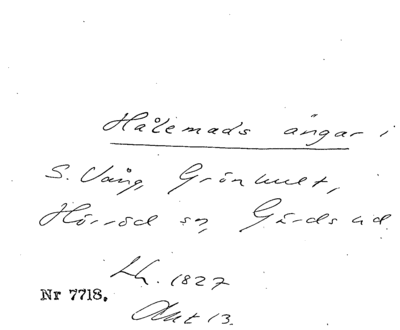 Hålemads ängar i
S. Vång, Grönhult,
Hörröd sn, Gärds hd.
Lh. 1827
Nr 7718.
Akt 13.